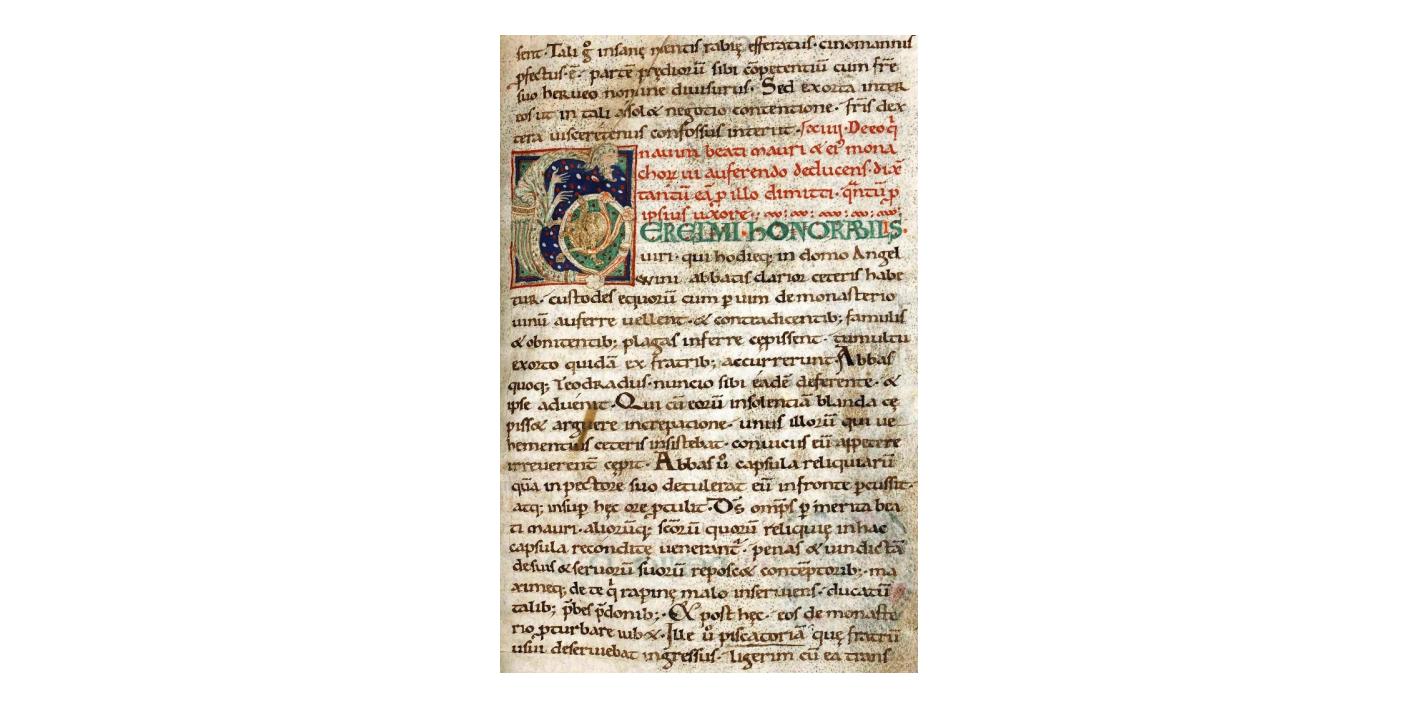 sent. Tali g͛ insanę mentis rabię efferatus. cinomannis
ꝑfectus. ē. partē prędioꝝū sibi cōpetentiū cum fr̄e
suo herueo nomine diuisurus. Sed exorta inter
eos ut in tali assolet negotio contentione. fr̄is dex
tera uisceretenus confossus interiit. De eo qͥ
nauim beati mauri & eiꝰ mona
choꝝ ui auferendo deducens. dix̄
tantū eā ꝑ illo dimitti. q̄ntū ꝑ
ipsius uxore.
ERELMI. HONORABILIS.
uiri. qui hodieq; in domo Angel
wini abbatis clarior ceteris habe
tur. custodes equorū cum ꝑ uim de monasterio
uinū auferre uellent. & contradicentib; famulis
& obnitentib; plagas inferre cępissent. tumultu
exorto quidā ex fratrib; accurrerunt. Abbas
quoq; Teodradus. nuncio sibi eadē deferente. &
ipse aduenit. Qui cū eorū insolentiā blanda cę
pisset arguere increpatione. unus illorū qui ue
hementius ceteris insistebat. conuicius eū appetere
irreuerent̄ cępit. Abbas u͛o capsula reliquiarū
quā in pectore suo detulerat eū in fronte ꝑcussit.
atq; insup̄ hęc ore ꝓtulit. Ds̄ omp̄s ꝑ merita bea
ti mauri. aliorūq; sc̄orū quorū reliquię in hac
capsula recondite uenerant̄. penas & uindictā
de suis & seruorū suorū reposcet contēptorib;. ma
ximeq; de te qͥ rapinę malo inseruiens. ducatū
talib; p̄bes p̄donib;. Et post hęc. eos de monaste
rio ꝓturbare iubet. Ille u͛o piscatoriā quę fratrū
usui deseruiebat ingressus. ligerim cū ea trans